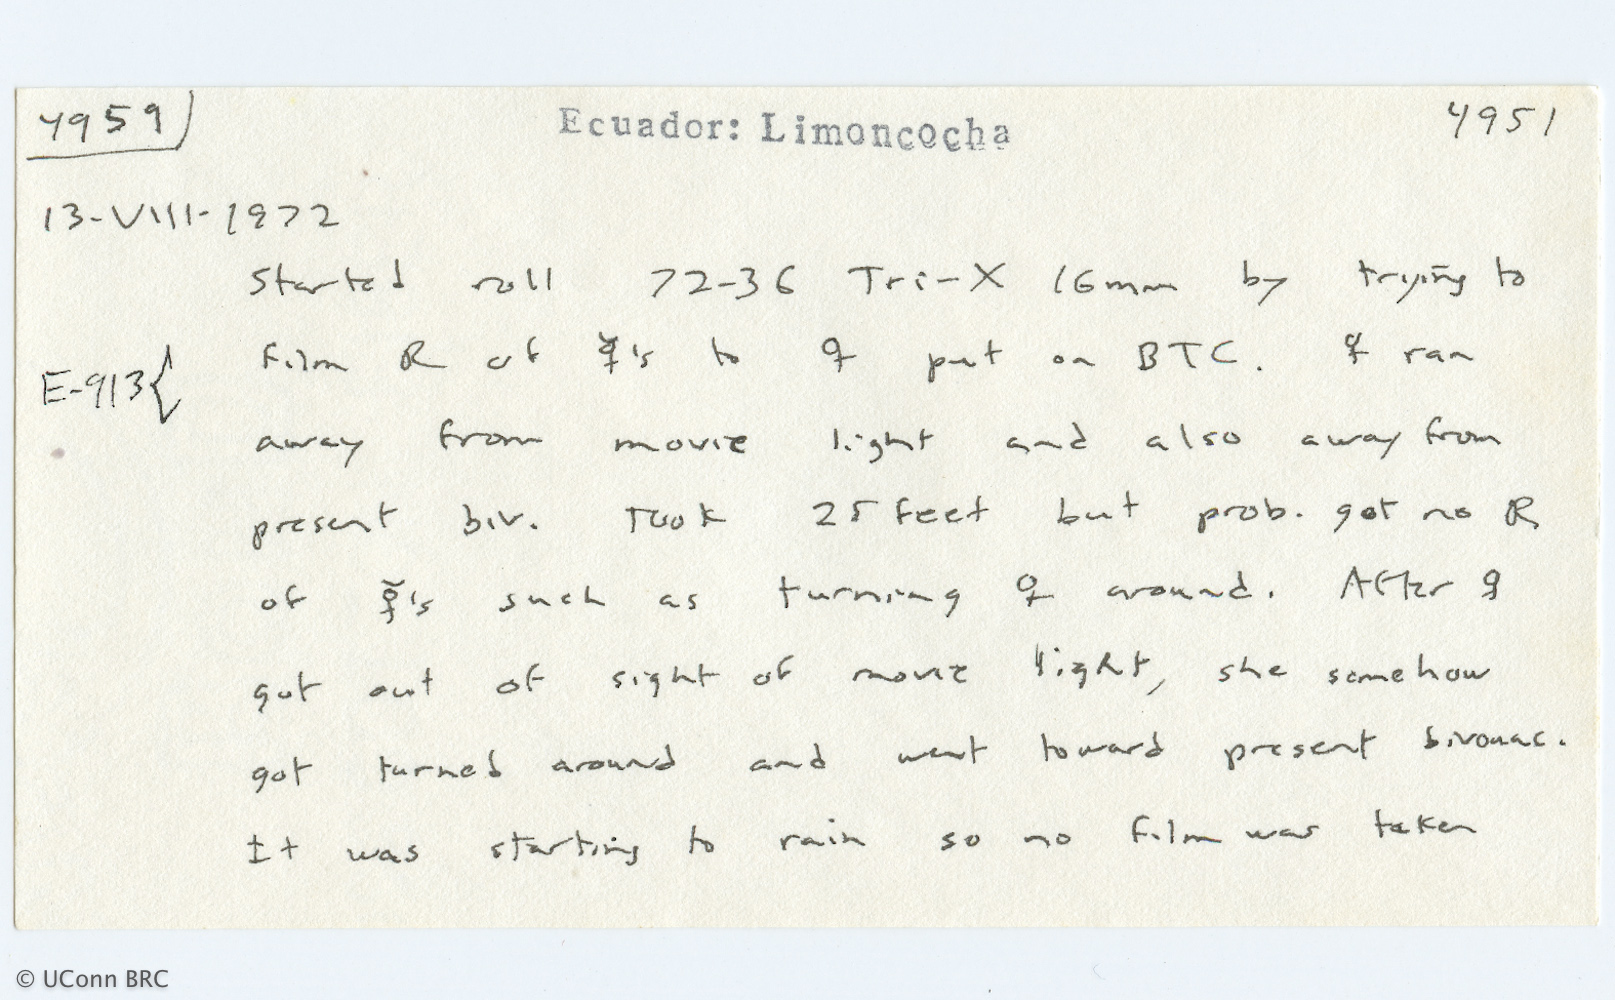 4959 Ecuador: Limoncocha 4951
13-VIII-1972
Started roll 72-36 Tri-X 16mm by trying to
E-913{ film R of ☿'s to ♀ put on BTC. ♀ ran
away from movie light and also away from
present biv. Took 25 feet but prob. got no R
of ☿'s such as turning ♀ around. After ♀
got out of sight of movie light, she somehow
got turned around and went toward present bivouac.
It was starting to rain so no film was taken
© UConn BRC